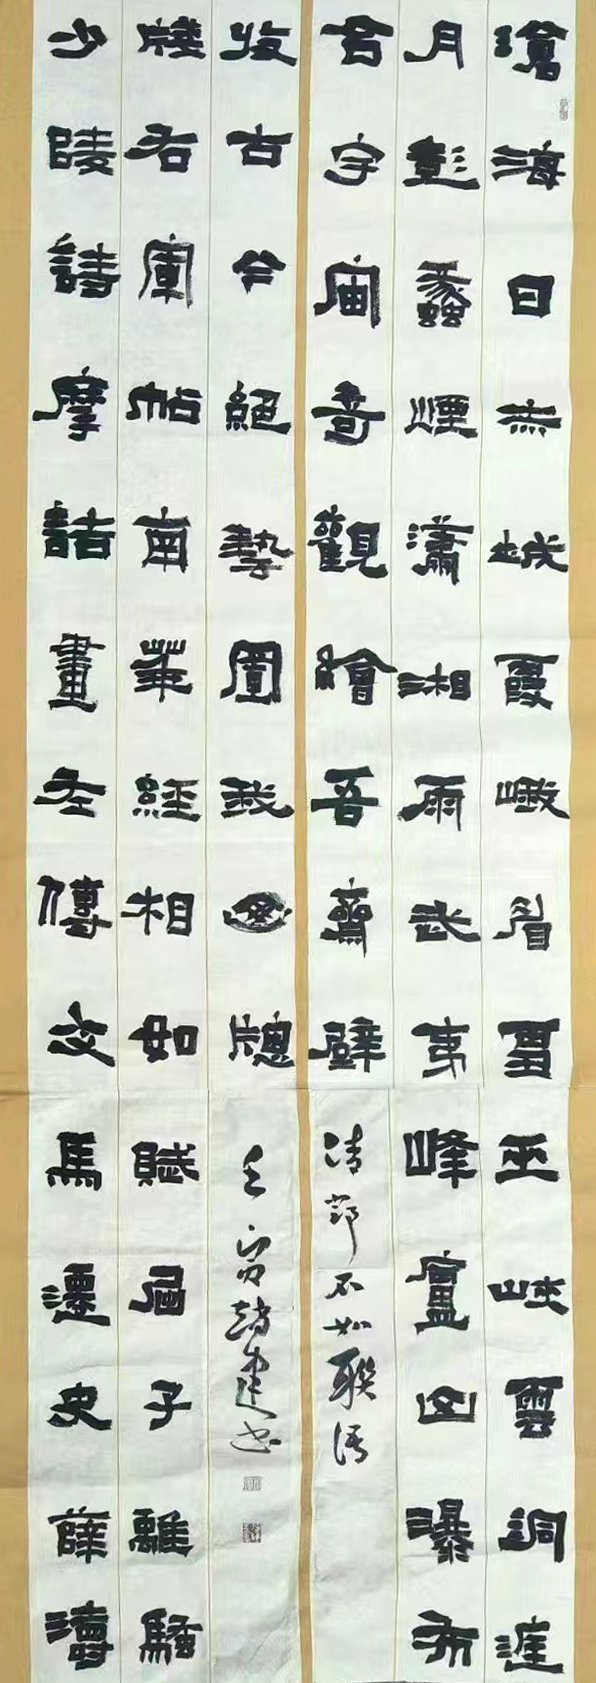 滄海日赤城霞峨眉雪巫峽雲洞庭
月彭蠡煙瀟湘雨武夷峰廬山瀑布
合宇宙奇觀繪吾齋壁
清鄧石如聯語
少陵詩摩詰畫左傳文馬遷史薛濤
牋右軍帖南華經相如賦屈子離騷
收古今絕藝置我山牕
壬寅趙建書